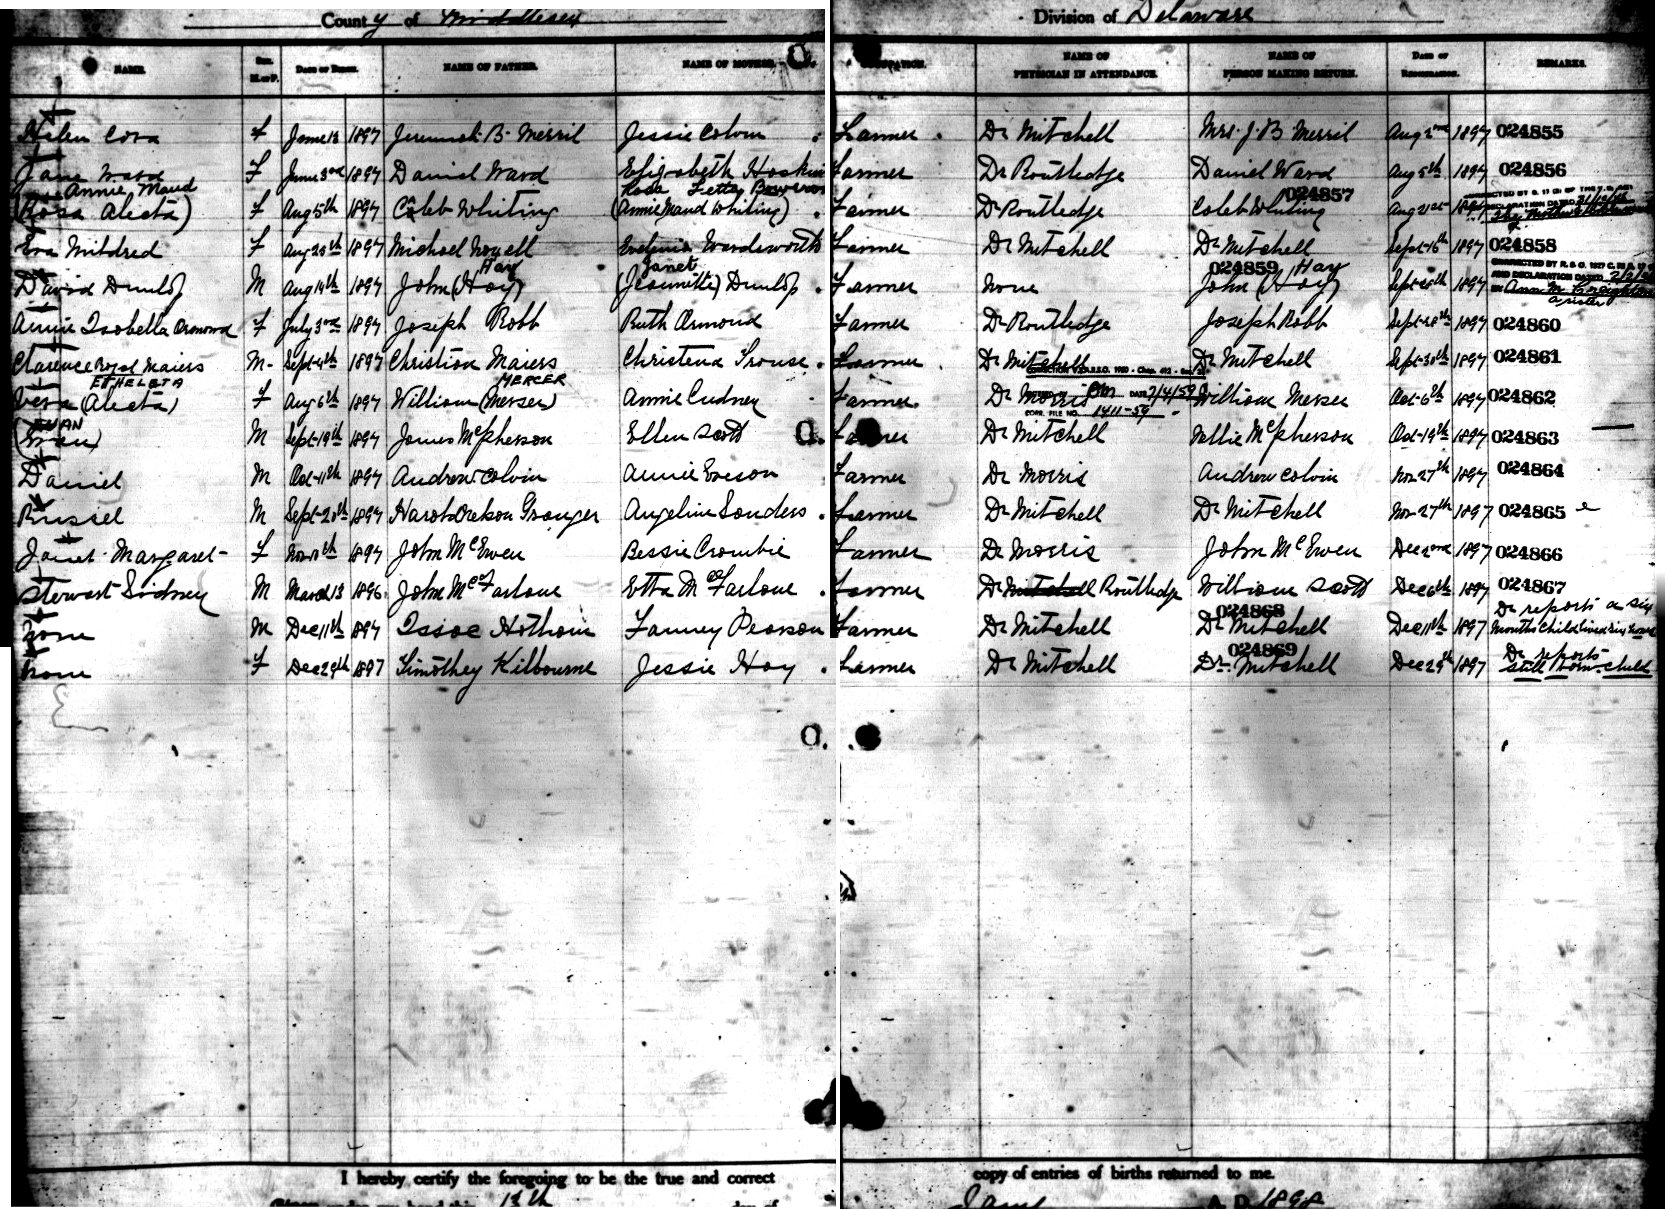 County of Middlesex Division of Delaware
NAME. SEX. M. or F. DATE OF BIRTH. NAME OF FATHER. NAME OF MOTHER. OCCUPATION. NAME OF PHYSICIAN IN ATTENDANCE. NAME OF PERSON MAKING RETURN. DATE OF REGISTRATION. REMARKS.
Helen Cora F June 13 1897 Jeremiah B. Merril Jessie Colvin Farmer Dr Mitchell Mrs. J. B Merril Aug 2nd 1897 024855
Jane Ward F June 3rd 1897 Daniel Ward Elizabeth Hoskin Farmer Dr Routledge Daniel Ward Aug 5th 1897 024856
Annie Maud Rosa Letta Bowerman 024857
(Rosa Alecta) F Aug 5th 1897 Caleb Whiting (Annie Maud Whiting) Farmer Dr Routledge Caleb Whiting Aug 21st 1897
Eva Mildred F Aug 20th 1897 Michael Howell Wardsworth Farmer Dr Mitchell Dr Mitchell Sept 16th 1897 024858
Hay Janet 024859 Hay
David Dunlop M Aug 14th 1897 John (Hoy) (Jeannitte) Dunlop Farmer None John (Hoy) 1897
Annie Isobella Ormond F July 3rd 1897 Joseph Robb Ruth Ormond Farmer Dr Routledge Joseph Robb Sept 28th 1897 024860
Clarence Royal Maiers M Sept 4th 1897 Christian Maiers Christena Trouse Farmer Dr Mitchell Dr Mitchell Sept 30th 1897 024861
ETHELETA MERCER
Vera (Alecta) F Aug 6th 1897 William (Merser) Annie Cudney Farmer Dr Morris William Merser Oct 6th 1897 024862
CORR. FILE NO. 1411-59
EUAN
(Ewan) M Sept 19th 1897 James McPherson Ellen Scott Farmer Dr Mitchell Nellie McPherson Oct 19th 1897 024863
Daniel M Oct 11th 1897 Andrew Colvin Annie Eveson Farmer Dr Morris Andrew Colvin Nov 27th 1897 024864
Russel M Sept 20th 1897 Granger Angeline Sanders Farmer Dr Mitchell Dr Mitchell Nov 27th 1897 024865
Janet Margaret F 1897 John McEwen Bessie Crombie Farmer Dr Morris John McEwen Dec 2nd 1897 024866
Stewart Sidney M March 13 1896 John McFarlane Etta McFarlane Farmer Dr Mitchell Routledge William Scott Dec 6th 1897 024867
024868 Dr reports a six
None M Dec 11th 1897 Isaac Hotham Fanney Pearson Farmer Dr Mitchell Dr Mitchell Dec 11th 1897 months child lived six hours
024869 Dr. reports
None F Dec 29th 1897 Timothey Kilbourne Jessie Hoy Farmer Dr Mitchell Dr. Mitchell Dec 29th 1897 still born child
I hereby certify the foregoing to be the true and correct copy of entries of births returned to me.